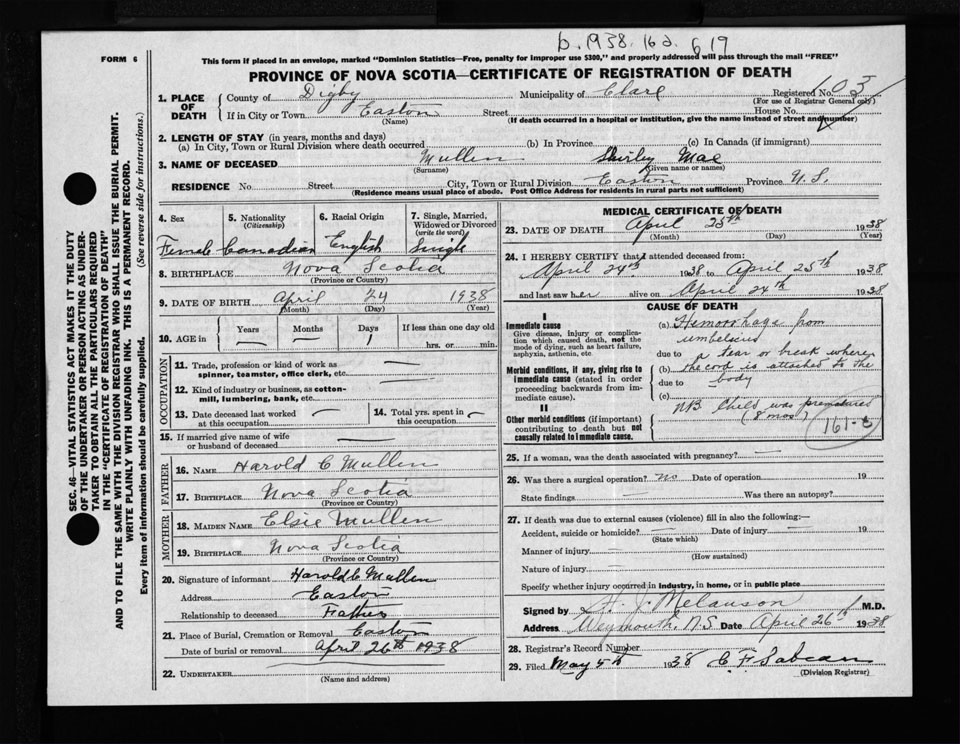 b. 1938. 162. 619
FORM 6
This form if placed in an envelope, marked "Dominion Statistics—Free, penalty for improper use $300," and properly addressed will pass through the mail "FREE"
PROVINCE OF NOVA SCOTIA—CERTIFICATE OF REGISTRATION OF DEATH
1. PLACE OF DEATH County of Digby Municipality of Clare Registered No. 103
(For use of Registrar General only)
If in City or Town Easton Street House No.
(Name) (If death occurred in a hospital or institution, give the name instead of street and number)
2. LENGTH OF STAY (in years, months and days)
(a) In City, Town or Rural Division where death occurred (b) In Province (c) In Canada (if immigrant)
3. NAME OF DECEASED Mullen Shirley Mae
(Surname) (Given name or names)
RESIDENCE No. Street City, Town or Rural Division Easton Province N.S.
(Residence means usual place of abode. Post Office Address for residents in rural parts not sufficient)
4. Sex 5. Nationality (Citizenship) 6. Racial Origin 7. Single, Married, Widowed or Divorced (write the word)
Female Canadian English Single
8. BIRTHPLACE Nova Scotia
(Province or Country)
9. DATE OF BIRTH April 24 1938
(Month) (Day) (Year)
10. AGE in Years Months Days If less than one day old
— — 1 hrs. or min.
OCCUPATION
11. Trade, profession or kind of work as spinner, teamster, office clerk, etc. —
12. Kind of industry or business, as cotton-mill, lumbering, bank, etc. —
13. Date deceased last worked at this occupation — 14. Total yrs. spent in this occupation —
15. If married give name of wife or husband of deceased —
FATHER
16. NAME Harold C Mullen
17. BIRTHPLACE Nova Scotia
(Province or Country)
MOTHER
18. MAIDEN NAME Elsie Mullen
19. BIRTHPLACE Nova Scotia
(Province or Country)
20. Signature of informant Harold C Mullen
Address Easton
Relationship to deceased Father
21. Place of Burial, Cremation or Removal Easton
Date of burial or removal April 26th 1938
22. UNDERTAKER
(Name and address)
MEDICAL CERTIFICATE OF DEATH
23. DATE OF DEATH April 25th 1938
(Month) (Day) (Year)
24. I HEREBY CERTIFY that I attended deceased from:
April 24th 1938 to April 25th 1938
and last saw her alive on April 24th 1938
CAUSE OF DEATH
I
Immediate cause
Give disease, injury or complication which caused death, not the mode of dying, such as heart failure, asphyxia, asthenia, etc.
(a) Hemorrhage from
due to
Morbid conditions, if any, giving rise to immediate cause (stated in order proceeding backwards from immediate cause).
a tear or break where
(b) the cord is attached to the
due to body
(c)
II
Other morbid conditions (if important) contributing to death but not causally related to immediate cause.
NB. Child was premature
(8 mos)
25. If a woman, was the death associated with pregnancy? —
26. Was there a surgical operation? no Date of operation 19
State findings — Was there an autopsy?
27. If death was due to external causes (violence) fill in also the following:—
Accident, suicide or homicide? — Date of injury — 19
(State which)
Manner of injury —
(How sustained)
Nature of injury —
Specify whether injury occurred in industry, in home, or in public place
Signed by J. Melanson M.D.
Address Weymouth, N.S. Date April 26th 1938
28. Registrar's Record Number
29. Filed May 5th 1938 C. F. Sabean
(Division Registrar)
SEC. 46—VITAL STATISTICS ACT MAKES IT THE DUTY
OF THE UNDERTAKER OR PERSON ACTING AS UNDER-
TAKER TO OBTAIN ALL THE PARTICULARS REQUIRED
IN THE "CERTIFICATE OF REGISTRATION OF DEATH"
AND TO FILE THE SAME WITH THE DIVISION REGISTRAR WHO SHALL ISSUE THE BURIAL PERMIT.
WRITE PLAINLY WITH UNFADING INK. THIS IS A PERMANENT RECORD.
Every item of information should be carefully supplied. (See reverse side for instructions.)